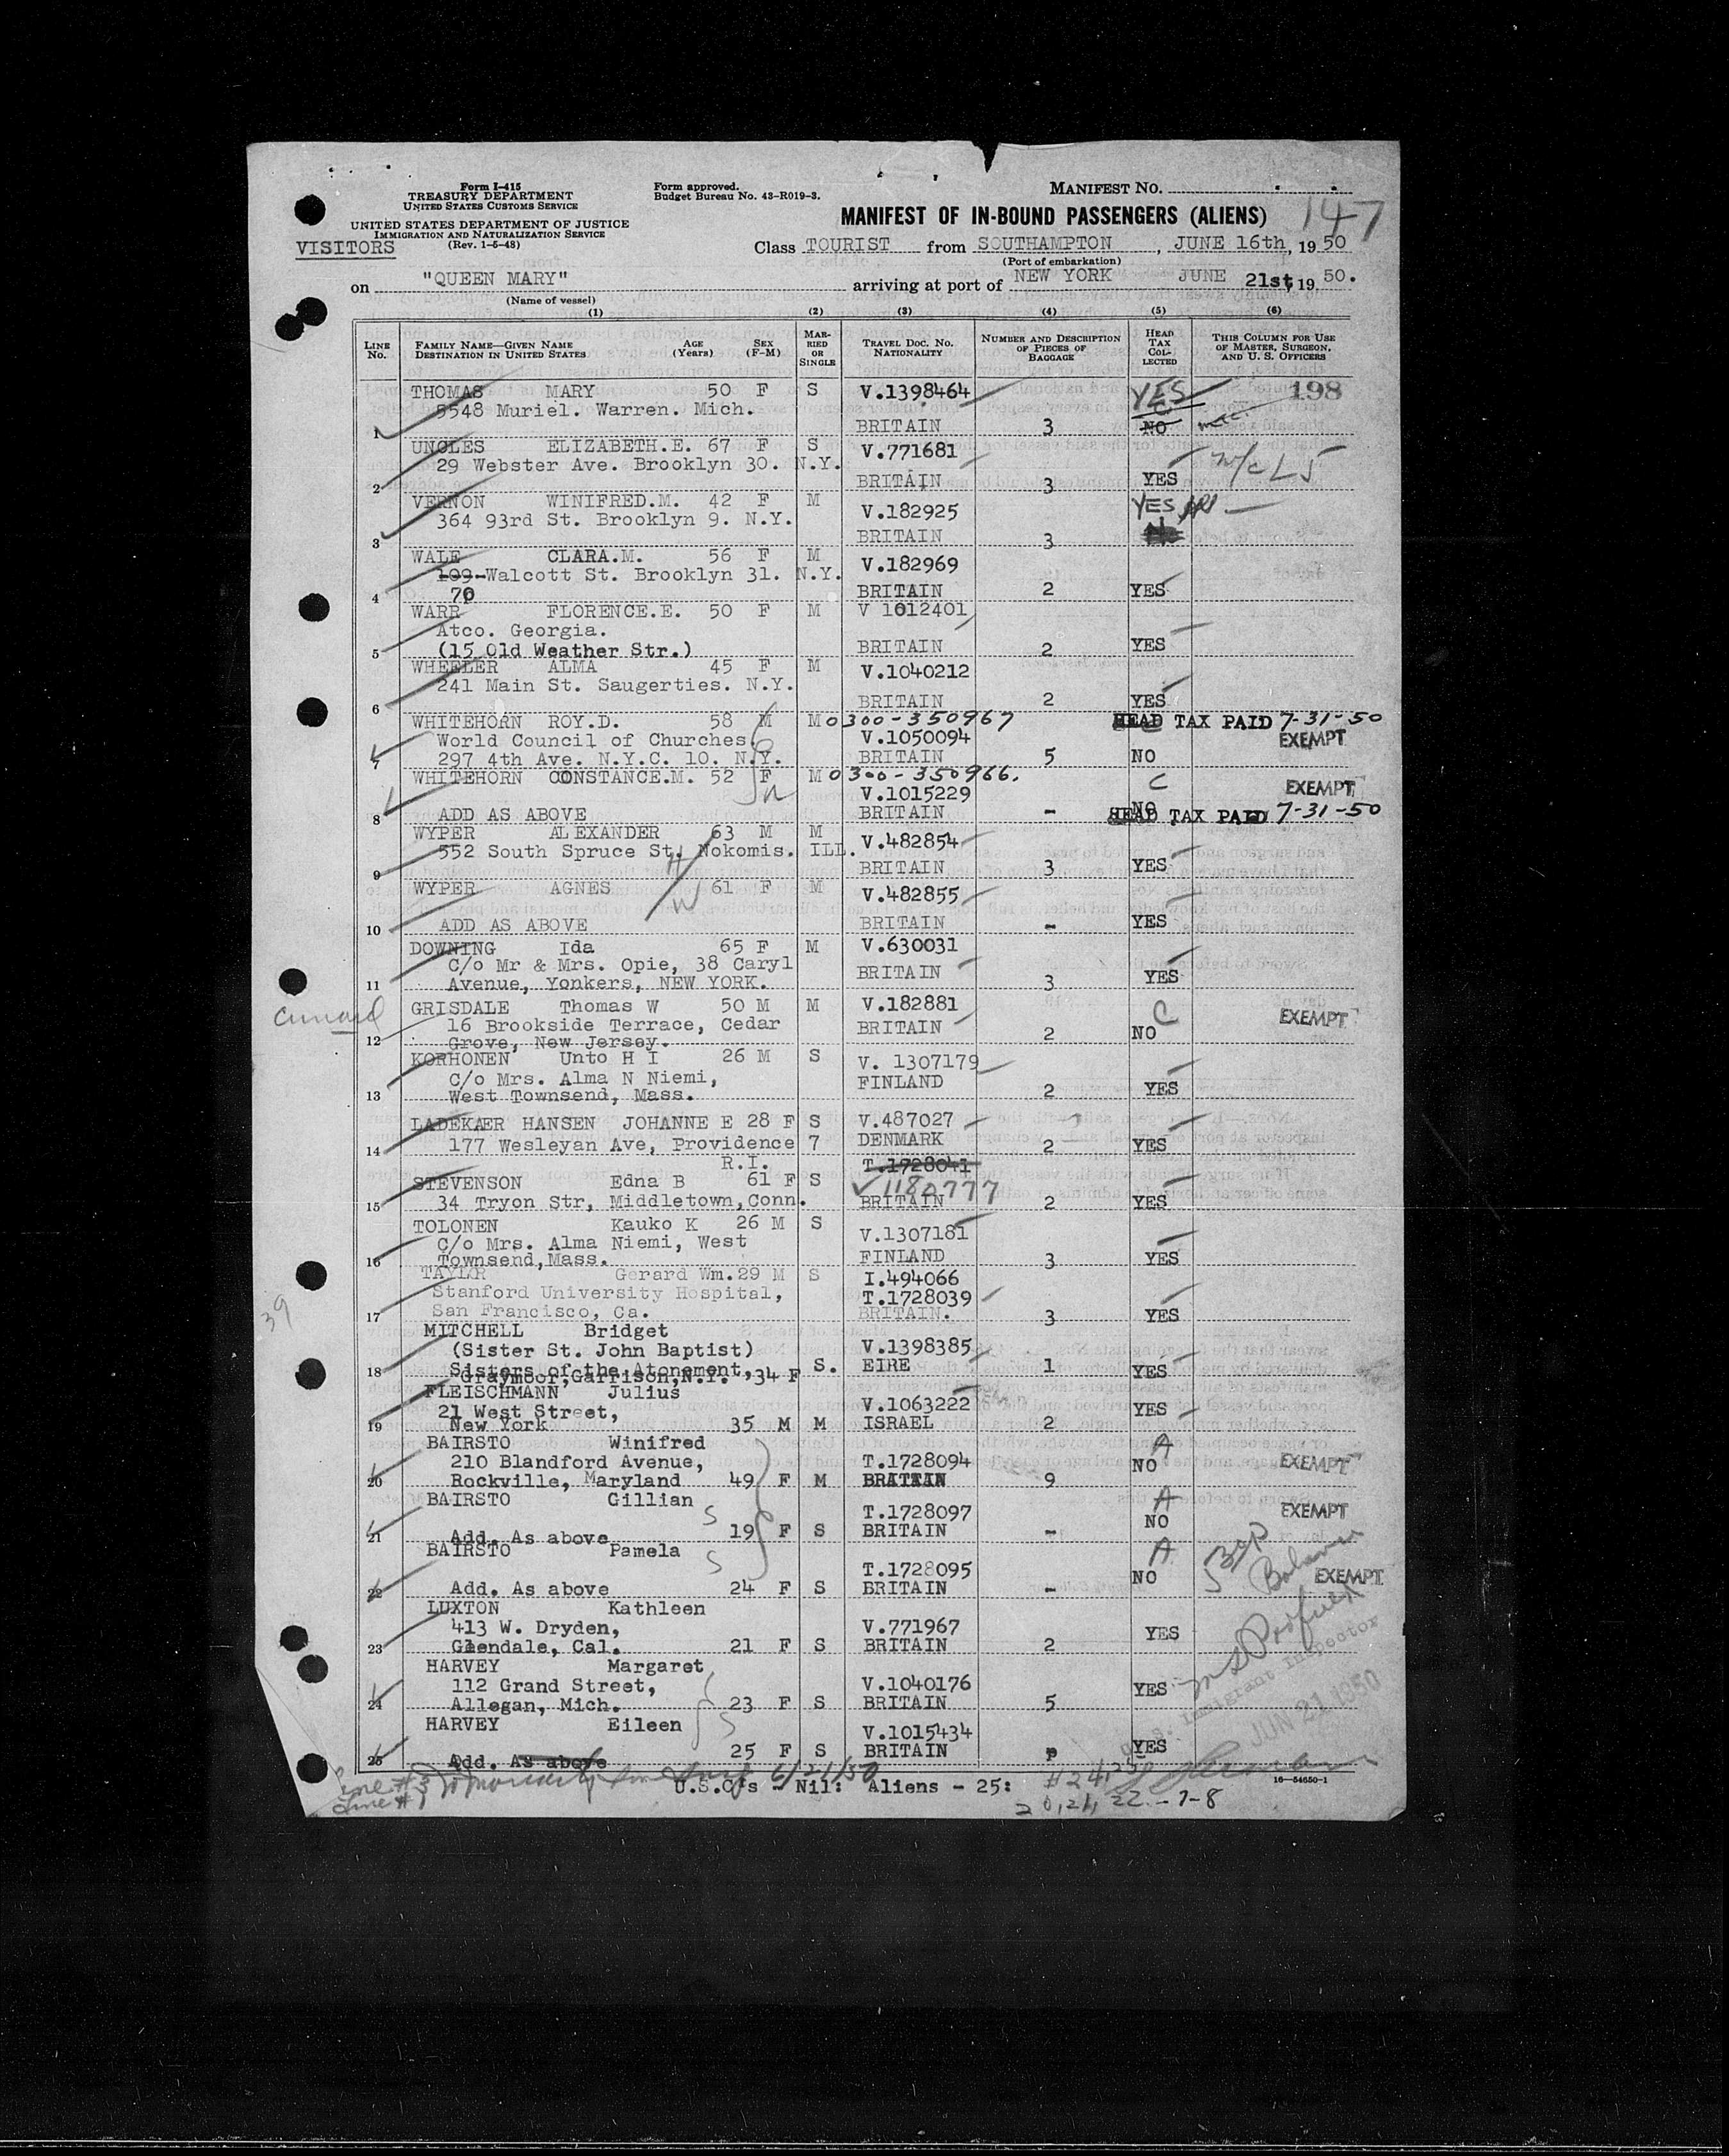 Form I-415
TREASURY DEPARTMENT
UNITED STATES CUSTOMS SERVICE
UNITED STATES DEPARTMENT OF JUSTICE
IMMIGRATION AND NATURALIZATION SERVICE
(Rev. 1-5-48)
VISITORS
Form approved.
Budget Bureau No. 43-R019-3.
MANIFEST NO.
147
MANIFEST OF IN-BOUND PASSENGERS (ALIENS)
Class TOURIST from SOUTHAMPTON, JUNE 16th, 1950
(Port of embarkation)
on "QUEEN MARY" arriving at port of NEW YORK JUNE 21st, 1950.
(Name of vessel)
(1) (2) (3) (4) (5) (6)
LINE NO. FAMILY NAME—GIVEN NAME DESTINATION IN UNITED STATES AGE (Years) SEX (F-M) MARRIED OR SINGLE TRAVEL DOC. NO. NATIONALITY NUMBER AND DESCRIPTION OF PIECES OF BAGGAGE HEAD TAX COLLECTED THIS COLUMN FOR USE OF MASTER, SURGEON, AND U. S. OFFICERS
THOMAS MARY 50 F S V.1398464 YES 198
5548 Muriel. Warren. Mich.
1 BRITAIN 3 NO
UNGLES ELIZABETH.E. 67 F S V.771681
29 Webster Ave. Brooklyn 30. N.Y. W/C L5
2 BRITAIN 3 YES
VERNON WINIFRED.M. 42 F M V.182925 YES
364 93rd St. Brooklyn 9. N.Y.
3 BRITAIN 3
WALE CLARA.M. 56 F M V.182969
109 Walcott St. Brooklyn 31. N.Y.
4 70 BRITAIN 2 YES
WARR FLORENCE.E. 50 F M V 1012401
Atco. Georgia.
5 (15 Old Weather Str.) BRITAIN 2 YES
WHEELER ALMA 45 F M V.1040212
241 Main St. Saugerties. N.Y.
6 BRITAIN 2 YES
WHITEHORN ROY.D. 58 M M 0300-350967 HEAD TAX PAID 7-31-50
World Council of Churches V.1050094 EXEMPT
7 297 4th Ave. N.Y.C. 10. N.Y. BRITAIN 5 NO
WHITEHORN CONSTANCE.M. 52 F M 0300-350966. C EXEMPT
V.1015229
8 ADD AS ABOVE BRITAIN - NO HEAD TAX PAID 7-31-50
WYPER ALEXANDER 63 M M V.482854
552 South Spruce St. Nokomis. ILL.
9 H BRITAIN 3 YES
WYPER AGNES 61 F M V.482855
W
10 ADD AS ABOVE BRITAIN - YES
DOWNING Ida 65 F M V.630031
C/o Mr & Mrs. Opie, 38 Caryl BRITAIN
11 Avenue, Yonkers, NEW YORK. 3 YES
Cunard
GRISDALE Thomas W 50 M M V.182881 C EXEMPT
16 Brookside Terrace, Cedar BRITAIN 2 NO
12 Grove, New Jersey.
KORHONEN Unto H I 26 M S V. 1307179
C/o Mrs. Alma N Niemi, FINLAND
13 West Townsend, Mass. 2 YES
LADEKAER HANSEN JOHANNE E 28 F S V.487027
14 177 Wesleyan Ave, Providence 7 DENMARK 2 YES
R.I. T.1728041
STEVENSON Edna B 61 F S V1180777
15 34 Tryon Str, Middletown,Conn. BRITAIN 2 YES
TOLONEN Kauko K 26 M S V.1307181
C/o Mrs. Alma Niemi, West
16 Townsend,Mass. FINLAND 3 YES
TAYLOR Gerard Wm. 29 M S I.494066
Stanford University Hospital, T.1728039
17 San Francisco, Ca. BRITAIN. 3 YES
39
MITCHELL Bridget
(Sister St. John Baptist) V.1398385
18 Sisters of the Atonement, S. EIRE 1 YES
Graymoor,Garrison,N.Y. 34 F
FLEISCHMANN Julius
21 West Street, V.1063222 YES
19 New York 35 M M ISRAEL 2
BAIRSTO Winifred A
210 Blandford Avenue, T.1728094 NO EXEMPT
20 Rockville, Maryland 49 F M BRITAIN 9
BAIRSTO Gillian A
S T.1728097 NO EXEMPT
21 Add. As above 19 F S BRITAIN -
BAIRSTO Pamela A
S T.1728095 NO EXEMPT
22 Add. As above 24 F S BRITAIN -
LUXTON Kathleen
413 W. Dryden, V.771967 YES
23 Glendale, Cal. 21 F S BRITAIN 2
HARVEY Margaret
112 Grand Street, V.1040176 YES
24 Allegan, Mich. 23 F S BRITAIN 5
Immigrant Inspector
JUN 21 1950
HARVEY Eileen S V.1015434
25 Add. As above 25 F S BRITAIN YES
Line #3
Line #1
6/21/50
U.S.C's - Nil: Aliens - 25:
#24,25
20,21, 22 - 7-8
16—54650-1